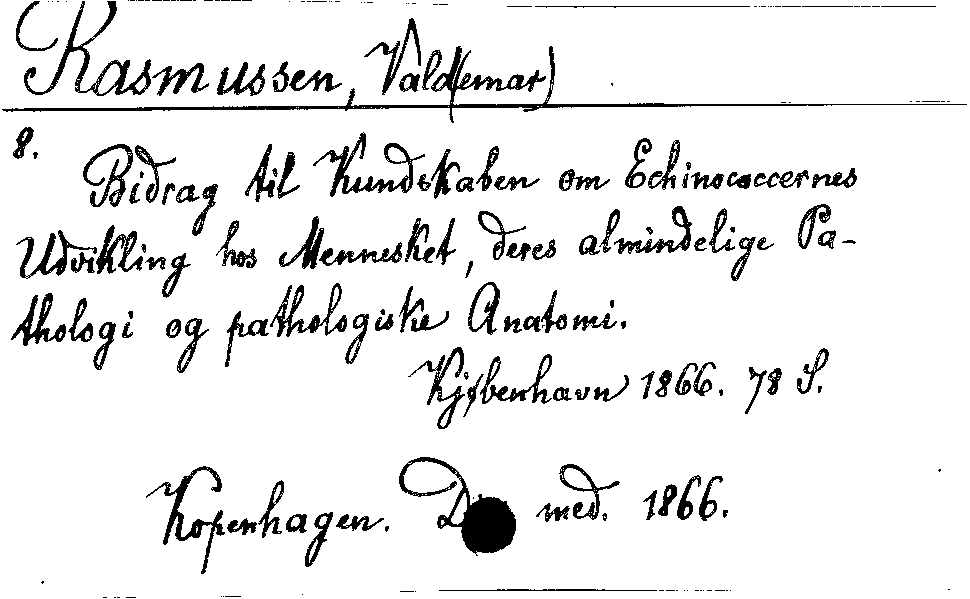 Rasmussen, Vald(emar)
8.
Bidrag til Kundskaben om Echinococcernes
Udvikling hos Mennesket, deres almindelige Pa-
thologi og pathologiske Anatomi.
Kjøbenhavn 1866. 78 S.
Kopenhagen. med. 1866.